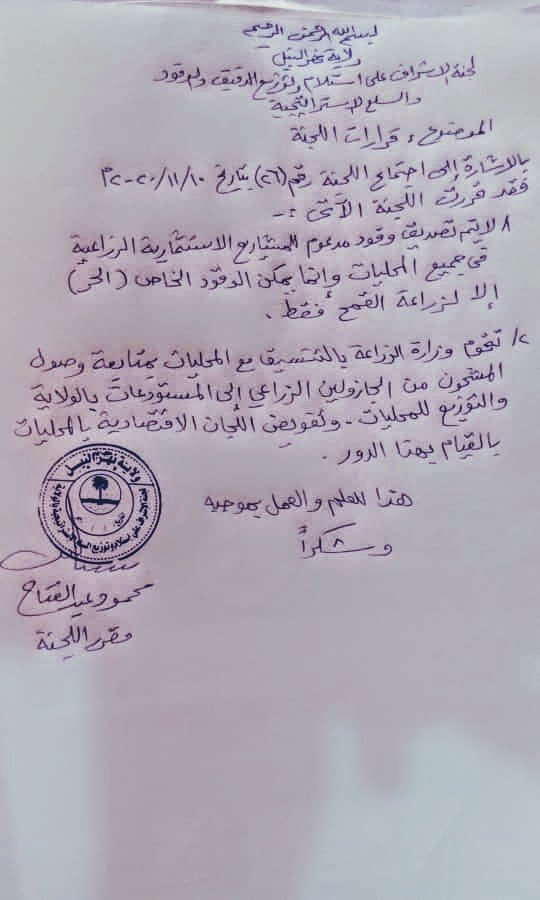 بسم الله الرحمن الرحيم
ولاية نهر النيل
لجنة الإشراف على استلام وتوزيع الدقيق والوقود
والسلع الإستراتيجية
الموضوع : قرارات اللجنة
بالإشارة إلى اجتماع اللجنة رقم (٢٦) بتاريخ ٢٠٢٠/١١/١٠م
فقد قررت اللجنة الآتي :-
١/ لا يتم تصديق وقود مدعوم للمشاريع الاستثمارية الزراعية
في جميع المحليات وإنما يمكن الوقود الخاص (الحر)
إلا لزراعة القمح فقط .
٢/ تقوم وزارة الزراعة بالتنسيق مع المحليات بمتابعة وصول
المشحون من الجازولين الزراعي إلى المستودعات بالولاية
والتوزيع للمحليات - وتفويض اللجان الاقتصادية بالمحليات
بالقيام بهذا الدور .
هذا للعلم والعمل بموجبه
وشكراً
ولاية نهر النيل
محمود عبد الفتاح
مقرر اللجنة